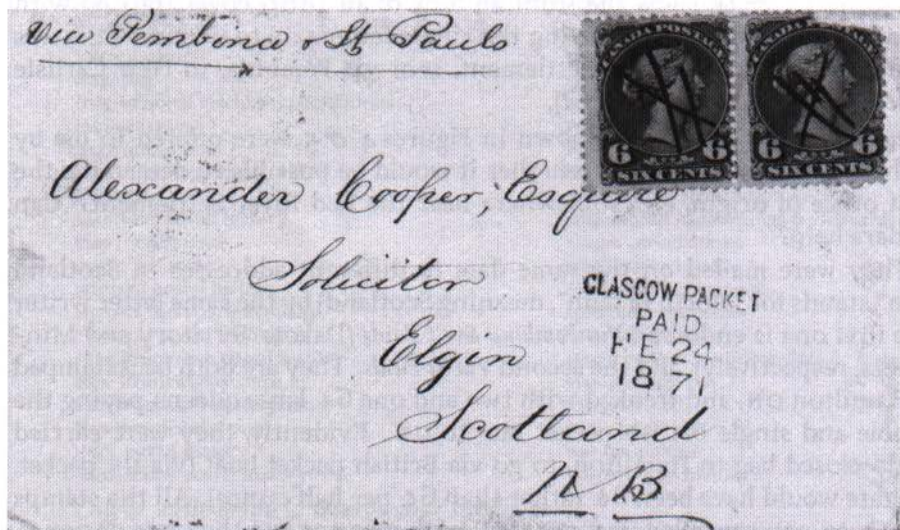 via Pembina & St Pauls
CANADA POSTAGE
6 6
SIX CENTS
CANADA POSTAGE
6 6
SIX CENTS
Alexander Cooper, Esquire
Solicitor
GLASCOW PACKET
PAID
Elgin
HE 24
1871
Scotland
N B